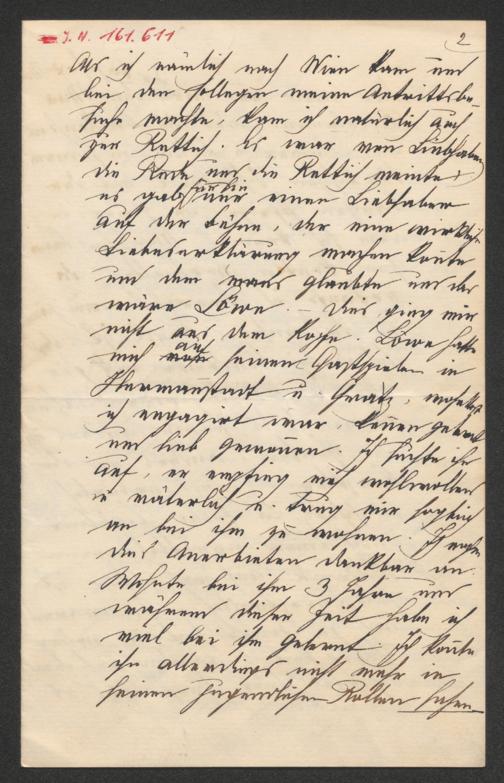 J. N. 161.611
2
Als ich nämlich nach Wien kam und
bei den Collegen meine Antrittsbe-
suche machte, kam ich natürlich auch
zur Rettich. Es war von Liebhabern
die Rede und die Rettich meinte:
es gab für sie nur einen Liebhaber
auf der Bühne, der eine wirkliche
Liebeserklärung machen könnte
und dem man's glaubte und das
wäre Löwe. – Dies ging mir
nicht aus dem Kopfe. Löwe hatte
mich auf seinen Gastspielen in
Hermannstadt u. Gratz, woselbst
ich engagirt war, kennen gelernt
und lieb gewonnen. Ich suchte ihn
auf, er empfing mich wohlwollend
u väterlich u. trug mir sogleich
an bei ihm zu wohnen. Ich nahm
dies Anerbieten dankbar an.
Wohnte bei ihm 3 Jahre und
während dieser Zeit habe ich
viel bei ihm gelernt. Ich konnte
ihn allerdings nicht mehr in
seinen jugendlichen Rollen sehen